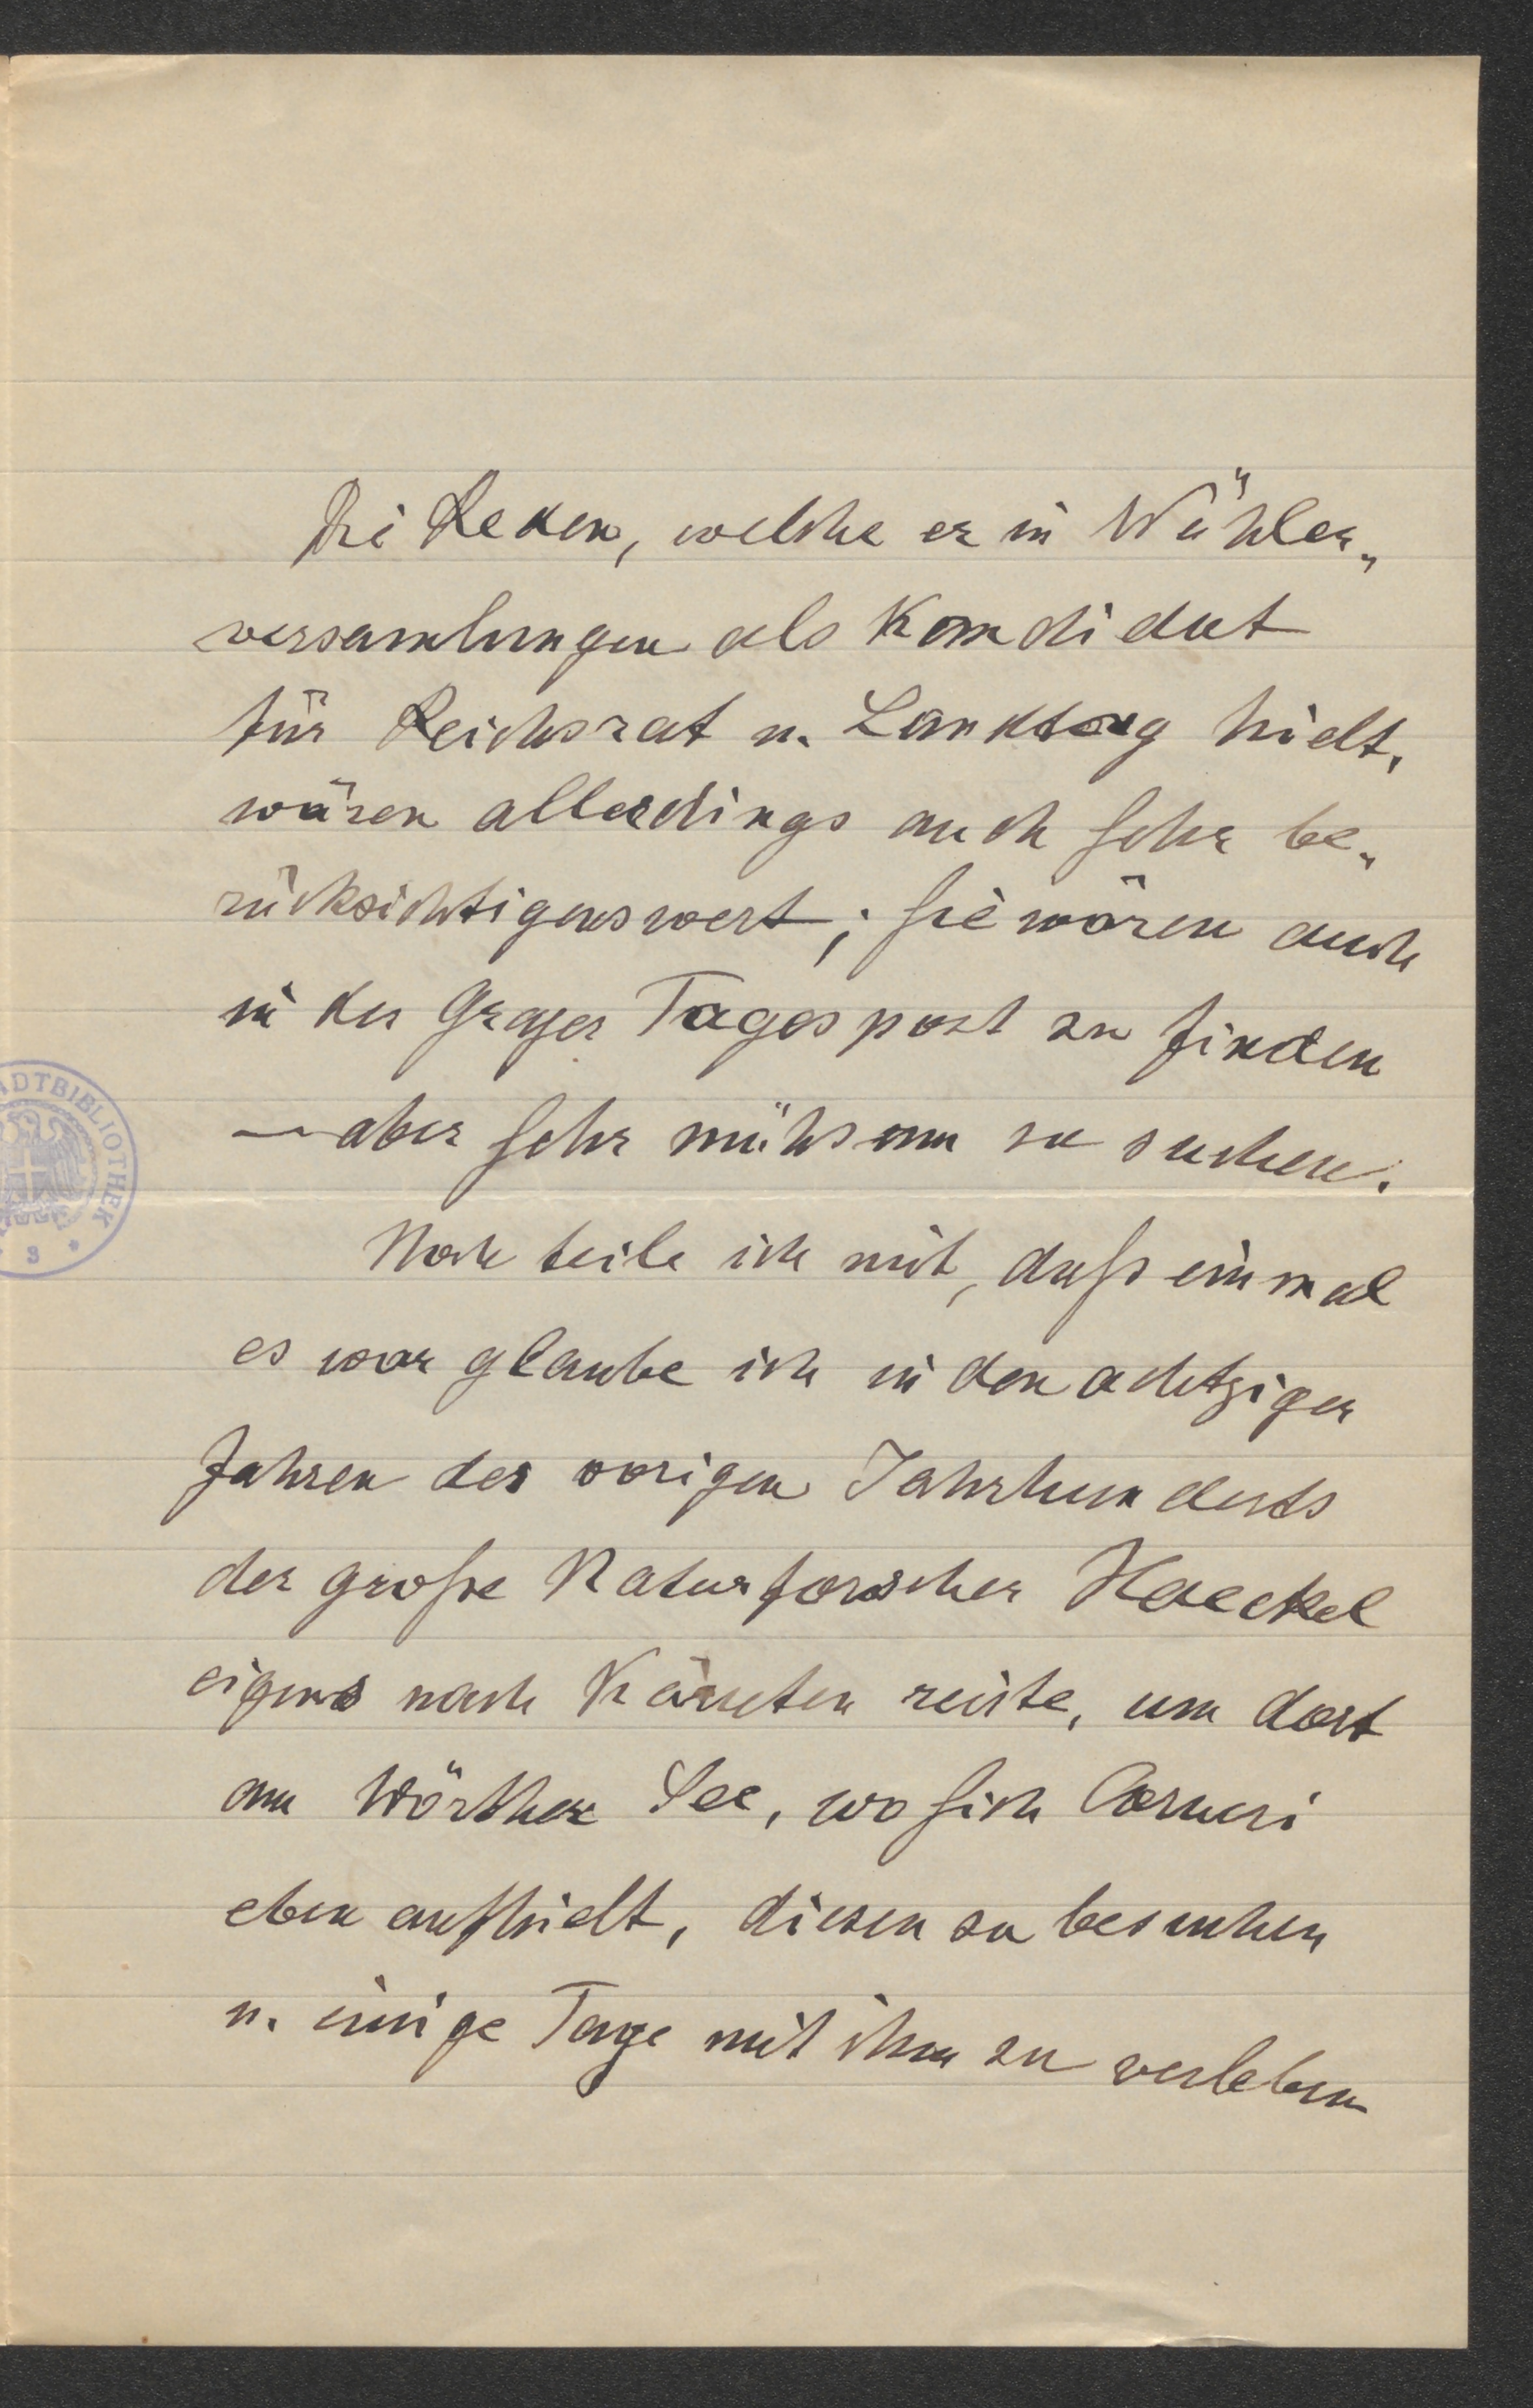 Die Reden, welche er in Wähler„
versamlungen als Kandidat
für Reichsrat u. Landtag hielt,
wären allerdings auch sehr be„
rücksichtigenswert; sie wären auch
in der Grazer Tagespost zu finden
— aber sehr mühsam zu suchen.
Noch teile ich mit, daß einmal
es war glaube ich in den achtziger
Jahren des vorigen Jahrhunderts
der große Naturforscher Haeckel
eigens nach Kärnten reiste, um dort
am Wörther See, wo sich Carneri
eben aufhielt, diesen zu besuchen
u. einige Tage mit ihm zu verleben
ADTBIBLIOTHEK